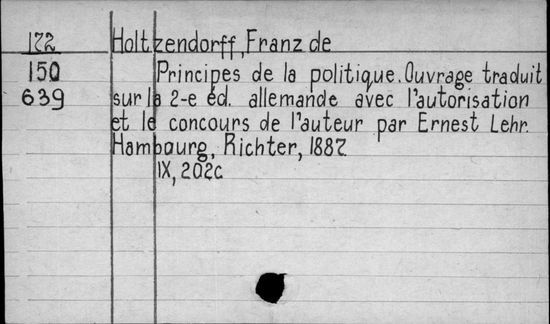 172 Holtzendorff, Franz de
150 Principes de la politique. Ouvrage traduit
639 sur la 2-e éd. allemande avec l'autorisation
et le concours de l'auteur par Ernest Lehr.
Hambourg, Richter, 1887
IX, 202c